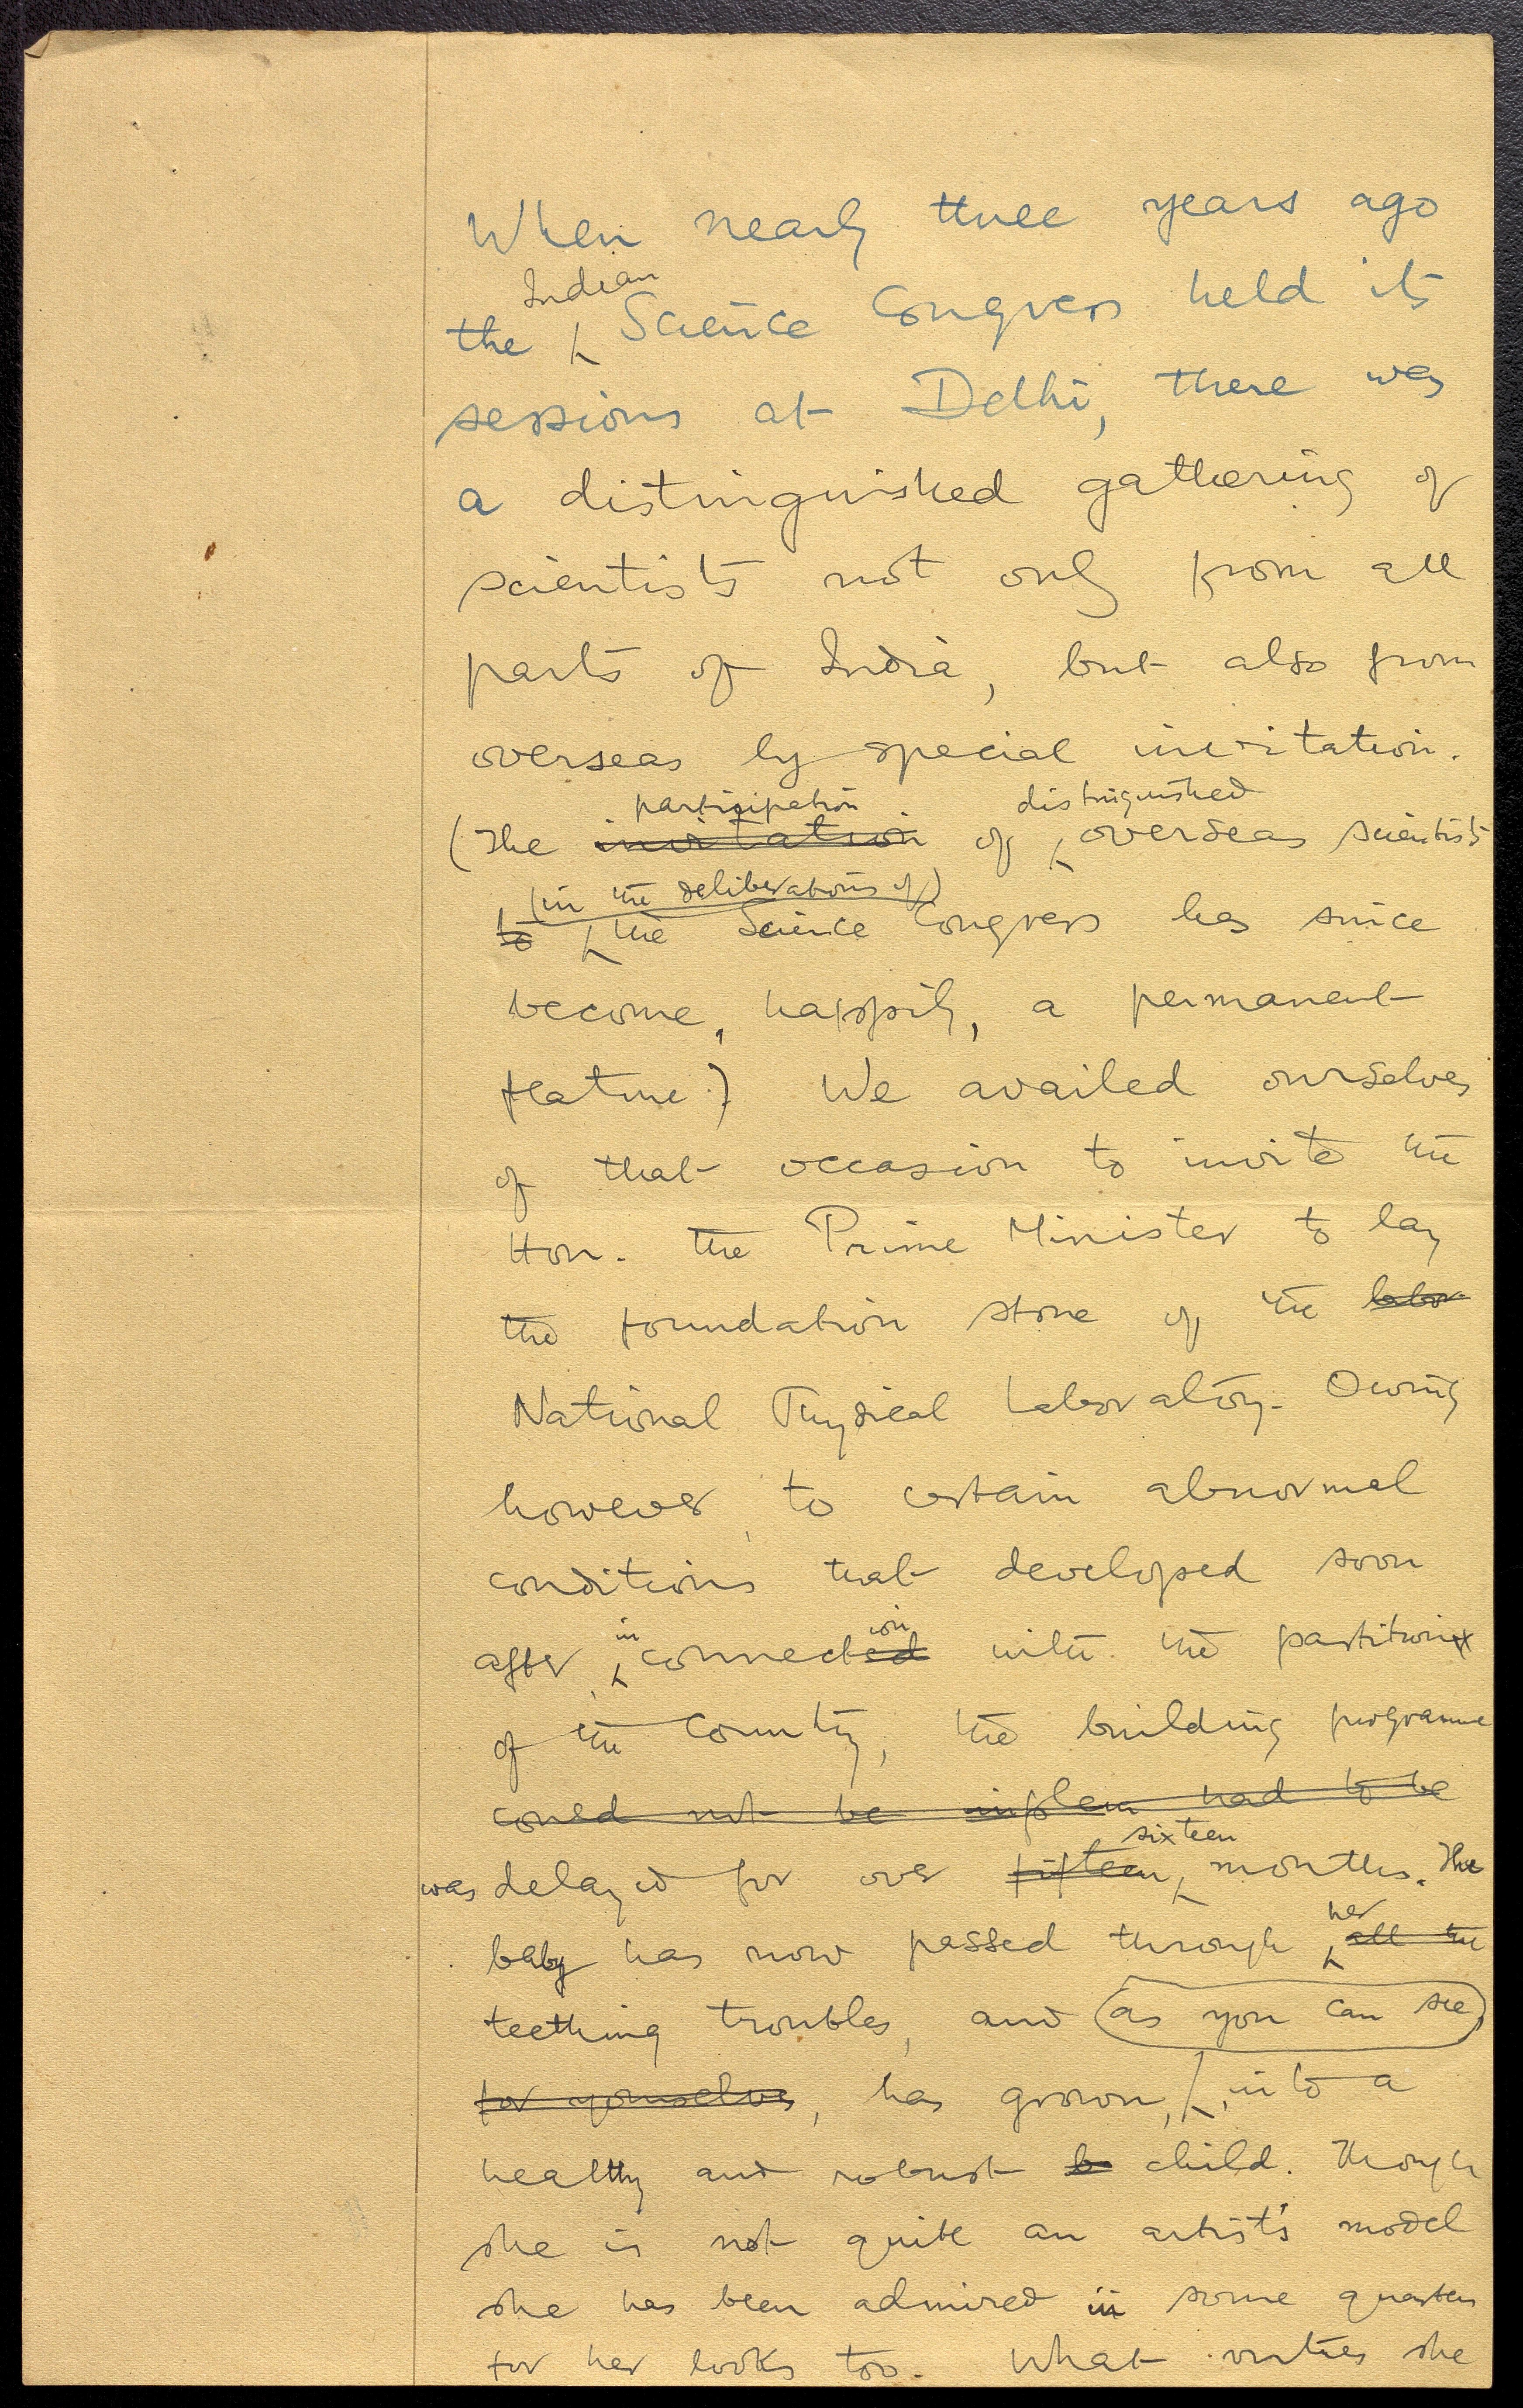 When nearly three years ago
the Indian Science Congress held its
sessions at Delhi, there was
a distinguished gathering of
scientists not only from all
parts of India, but also from
overseas by special invitation.
participation distinguished
(The invitation of overseas scientists
(in the deliberations of)
to the Science Congress has since
become, happily, a permanent
feature.) We availed ourselves
of that occasion to invite the
Hon. the Prime Minister to lay
the foundation stone of the labor
National Physical Laboratory. Owing
however, to certain abnormal
conditions that developed soon
in ion
after, connected with the partition
of the Country, the building programme
could not be implem had to be
sixteen
was delayed for over fifteen months. The
her
baby has now passed through all the
teething troubles, and (as you can see)
for yourselves, has grown, into a
healthy and robust b child. Though
she is not quite an artist's model
she has been admired in some quarters
for her looks too. What virtues she